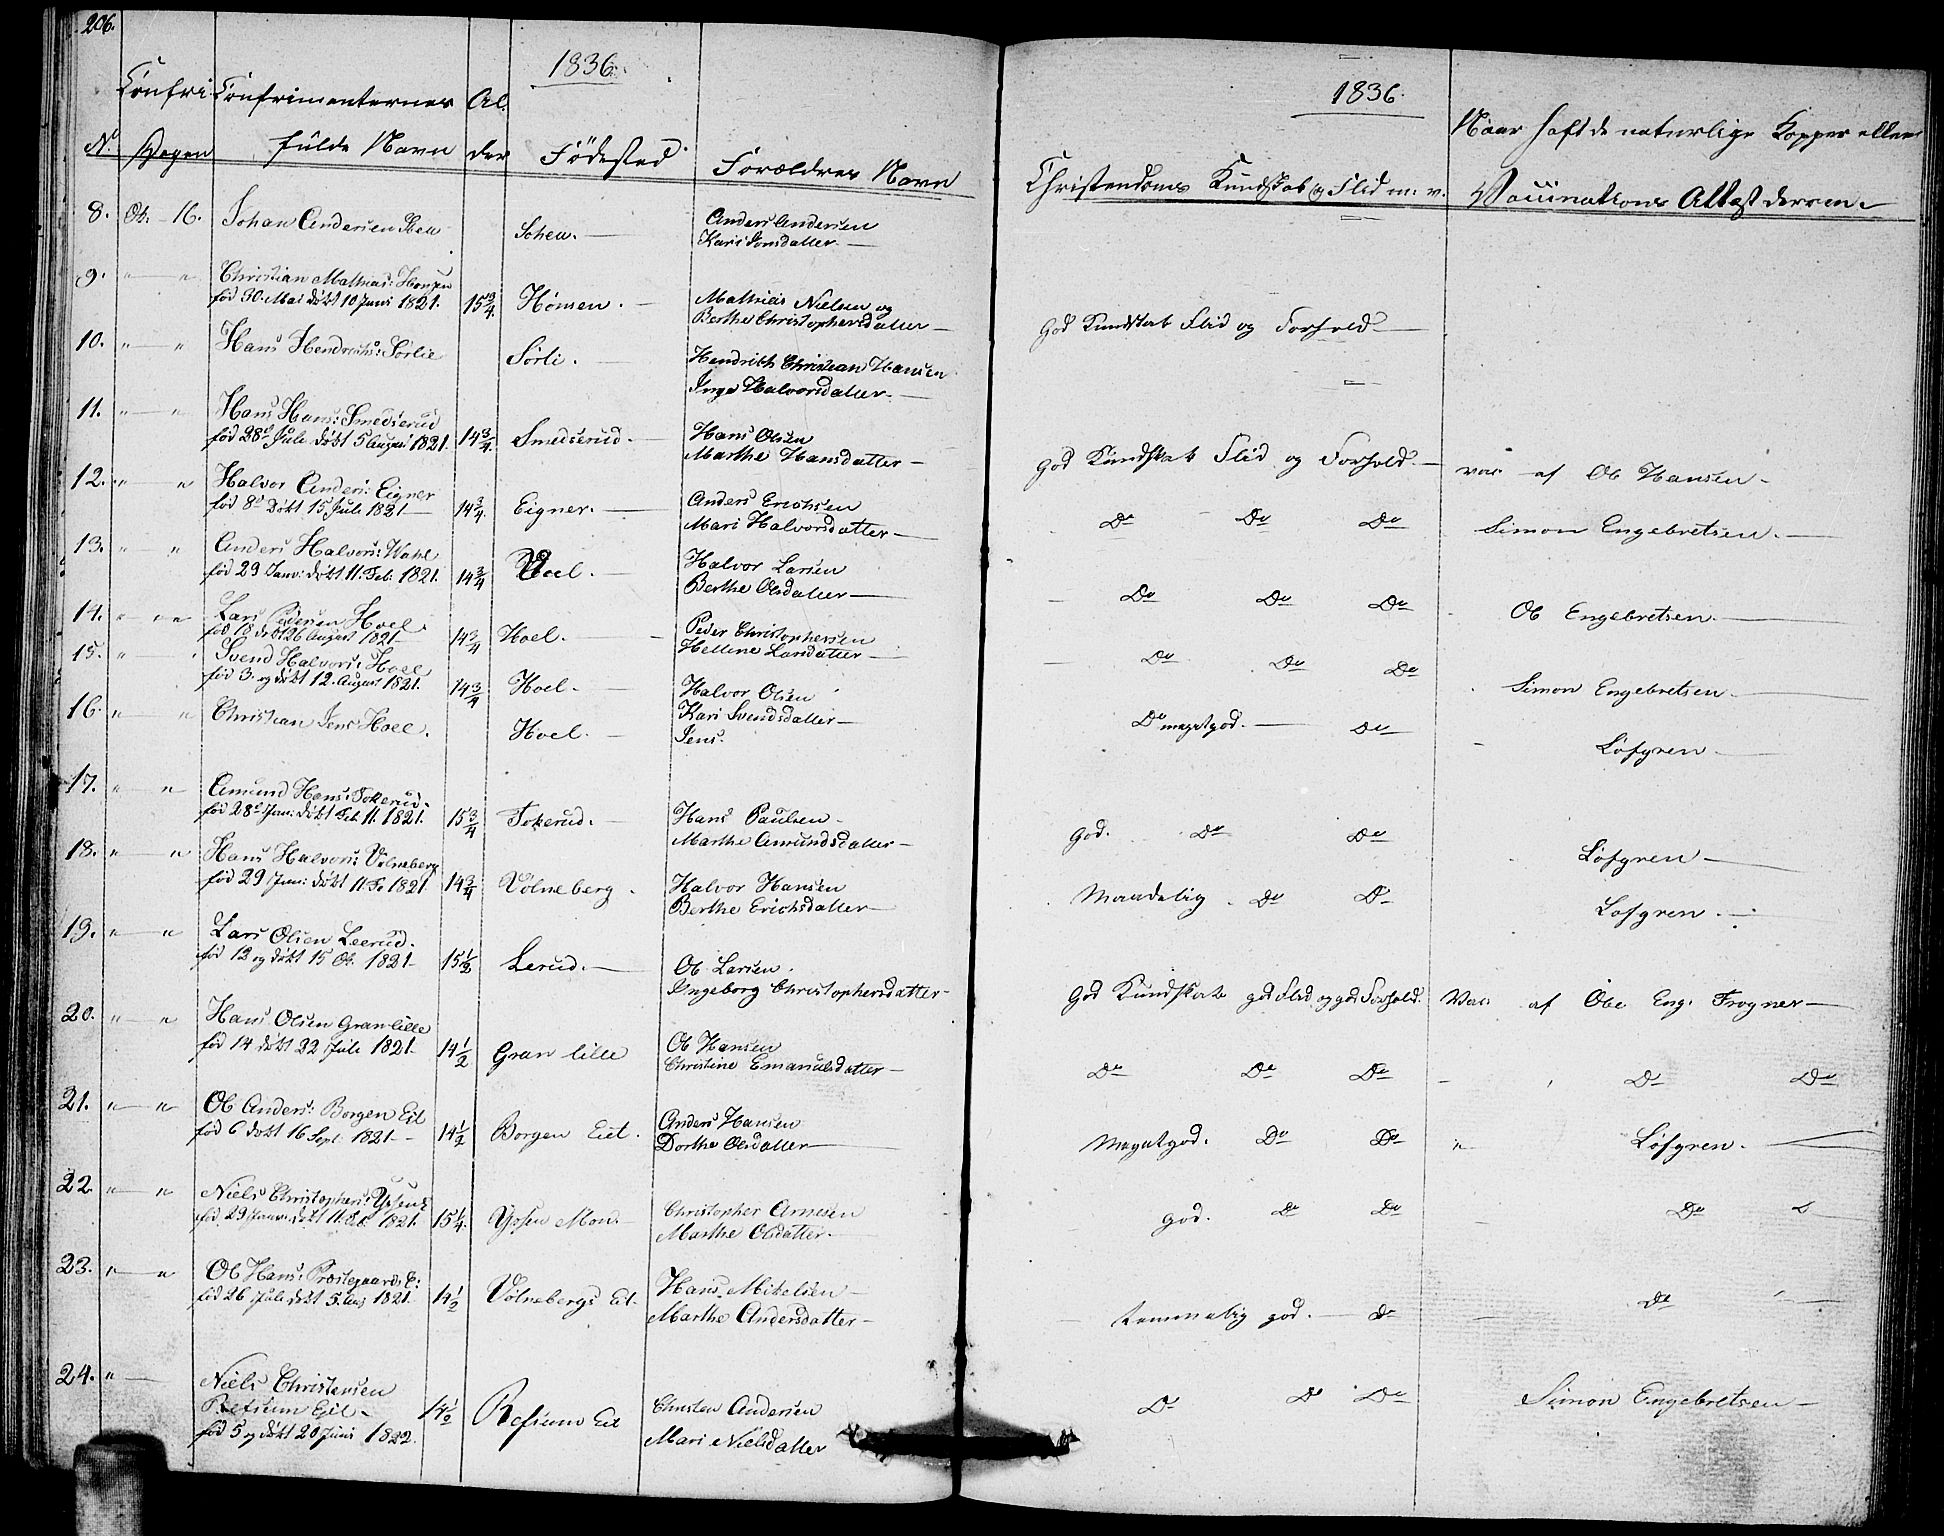 206.
1836.
1836.
Confri Confrimenternes Al.
Naar haft de naturlige Kopper eller
No Dagen fulde Navn der Fødested Forældres Navn
Christendoms Kundskab og Flid m. v. Vaccinations Attest derom
8. Ok. 16. Johan Andersen Schea Anders Andersen
Schea. Kari Jonsdatter
9. " " Christian Mathias: Hønsen
fød 30. Mai døbt 10 Juni 1821. 15 3/4 Hønsen. Mathias Nielsen og
Berthe Christophersdatter God Kundskab Flid og Forhold
10. " " Hans Hendrichs: Sørlie
Sørli. Hendrich Christian Hansen
Inge Halvorsdatter
11. " " Hans Hans: Smedserud
fød 28d Juli døbt 5 August 1821. 14 3/4 Smedserud. Hans Olsen
Marthe Hansdatter God Kundskab Flid og Forhold vac af Ole Hansen
12. " " Halvor Anders: Eigner
fød 8d døbt 15 Juli 1821 14 3/4 Eigner. Anders Erichsen
Mari Halvorsdatter Do Do Do Simon Engebretsen.
13. " " Anders Halvors: Wahl
fød 29 Janv: døbt 11. Feb: 1821. 14 3/4 Halvor Larsen
Berthe Olsdatter Do Do Do Ole Engebretsen
14. " " Lars Pedersen Hoel.
fød 18 døbt 26 August 1821 14 3/4 Hoel. Peder Christophersen
Hellene Larsdatter Do Do Do Simon Engebretsen
15. " Svend Halvors: Hoel
fød 3. og døbt 12. August 1821. 14 3/4 Hoel. Halvor Olsen
Kari Svendsdatter Do megetgod. Do Løfgren
16. " " Christian Jens Hoel. Hoel. Jens.
17. " " Amund Hans: Tokerud.
fød 28d Jan: døbt Feb. 11. 1821. 15 3/4 Tokerud. Hans Paulsen
Marthe Amundsdatter God. Do Do Løfgren
18. " " Hans Halvors: Volneberg
fød 29 Jan: døbt 11 Fe 1821 14 3/4 Volneberg. Halvor Hansen
Berthe Erichsdatter Maadelig Do Do Løfgren.
19. " " Lars Olsen Leerud.
fød 12 og døbt 15 Ok. 1821 15 1/2 Lerud. Ole Larsen.
Ingeborg Christophersdatter God Kundskab god Flid og god Forhold. Vac af Ole Eng: Frogner
20. " " Hans Olsen Gran lille
fød 14 døbt 22 Juli 1821. 14 1/2 Gran lille Ole Hansen
Christine Emanuelsdatter Do Do Do Do Do
21. " " Ole Anders: Borgen Eit
fød 6 døbt 16 Sept 1821. 14 1/2 Borgen Eiet. Anders Hansen
Dorthe Olsdatter Megetgod. Do Do " Løfgren.
22. " " Niels Christophers:
fød 29 Janv: døbt 11. Feb. 1821. 15 1/4. Christopher Arnesen
Marthe Olsdatter. god. Do Do Do
23. " " Ole Hans: Præstegaards E:
fød 26 Juli døbt 5. Aug 1821. 14 1/2 Volnebergs Eit. Hans Mikelsen
Marthe Andersdatter temmelig god. do Do
24. " Niels Christensen
Refsum Eit
fød 5 og døbt 20 Juni 1822. 14 1/2 Refsum Eit Christen Andersen
Mari Nielsdatter Do Do Do Simon Engebretsen